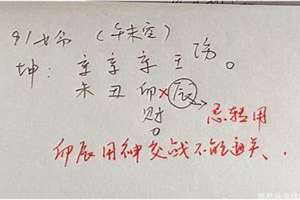 91女命 (午未空)
坤: 辛 辛 辛 壬 陽。
未 丑 卯 × 辰
财 忌轻用
卯辰用神交战不能通关.